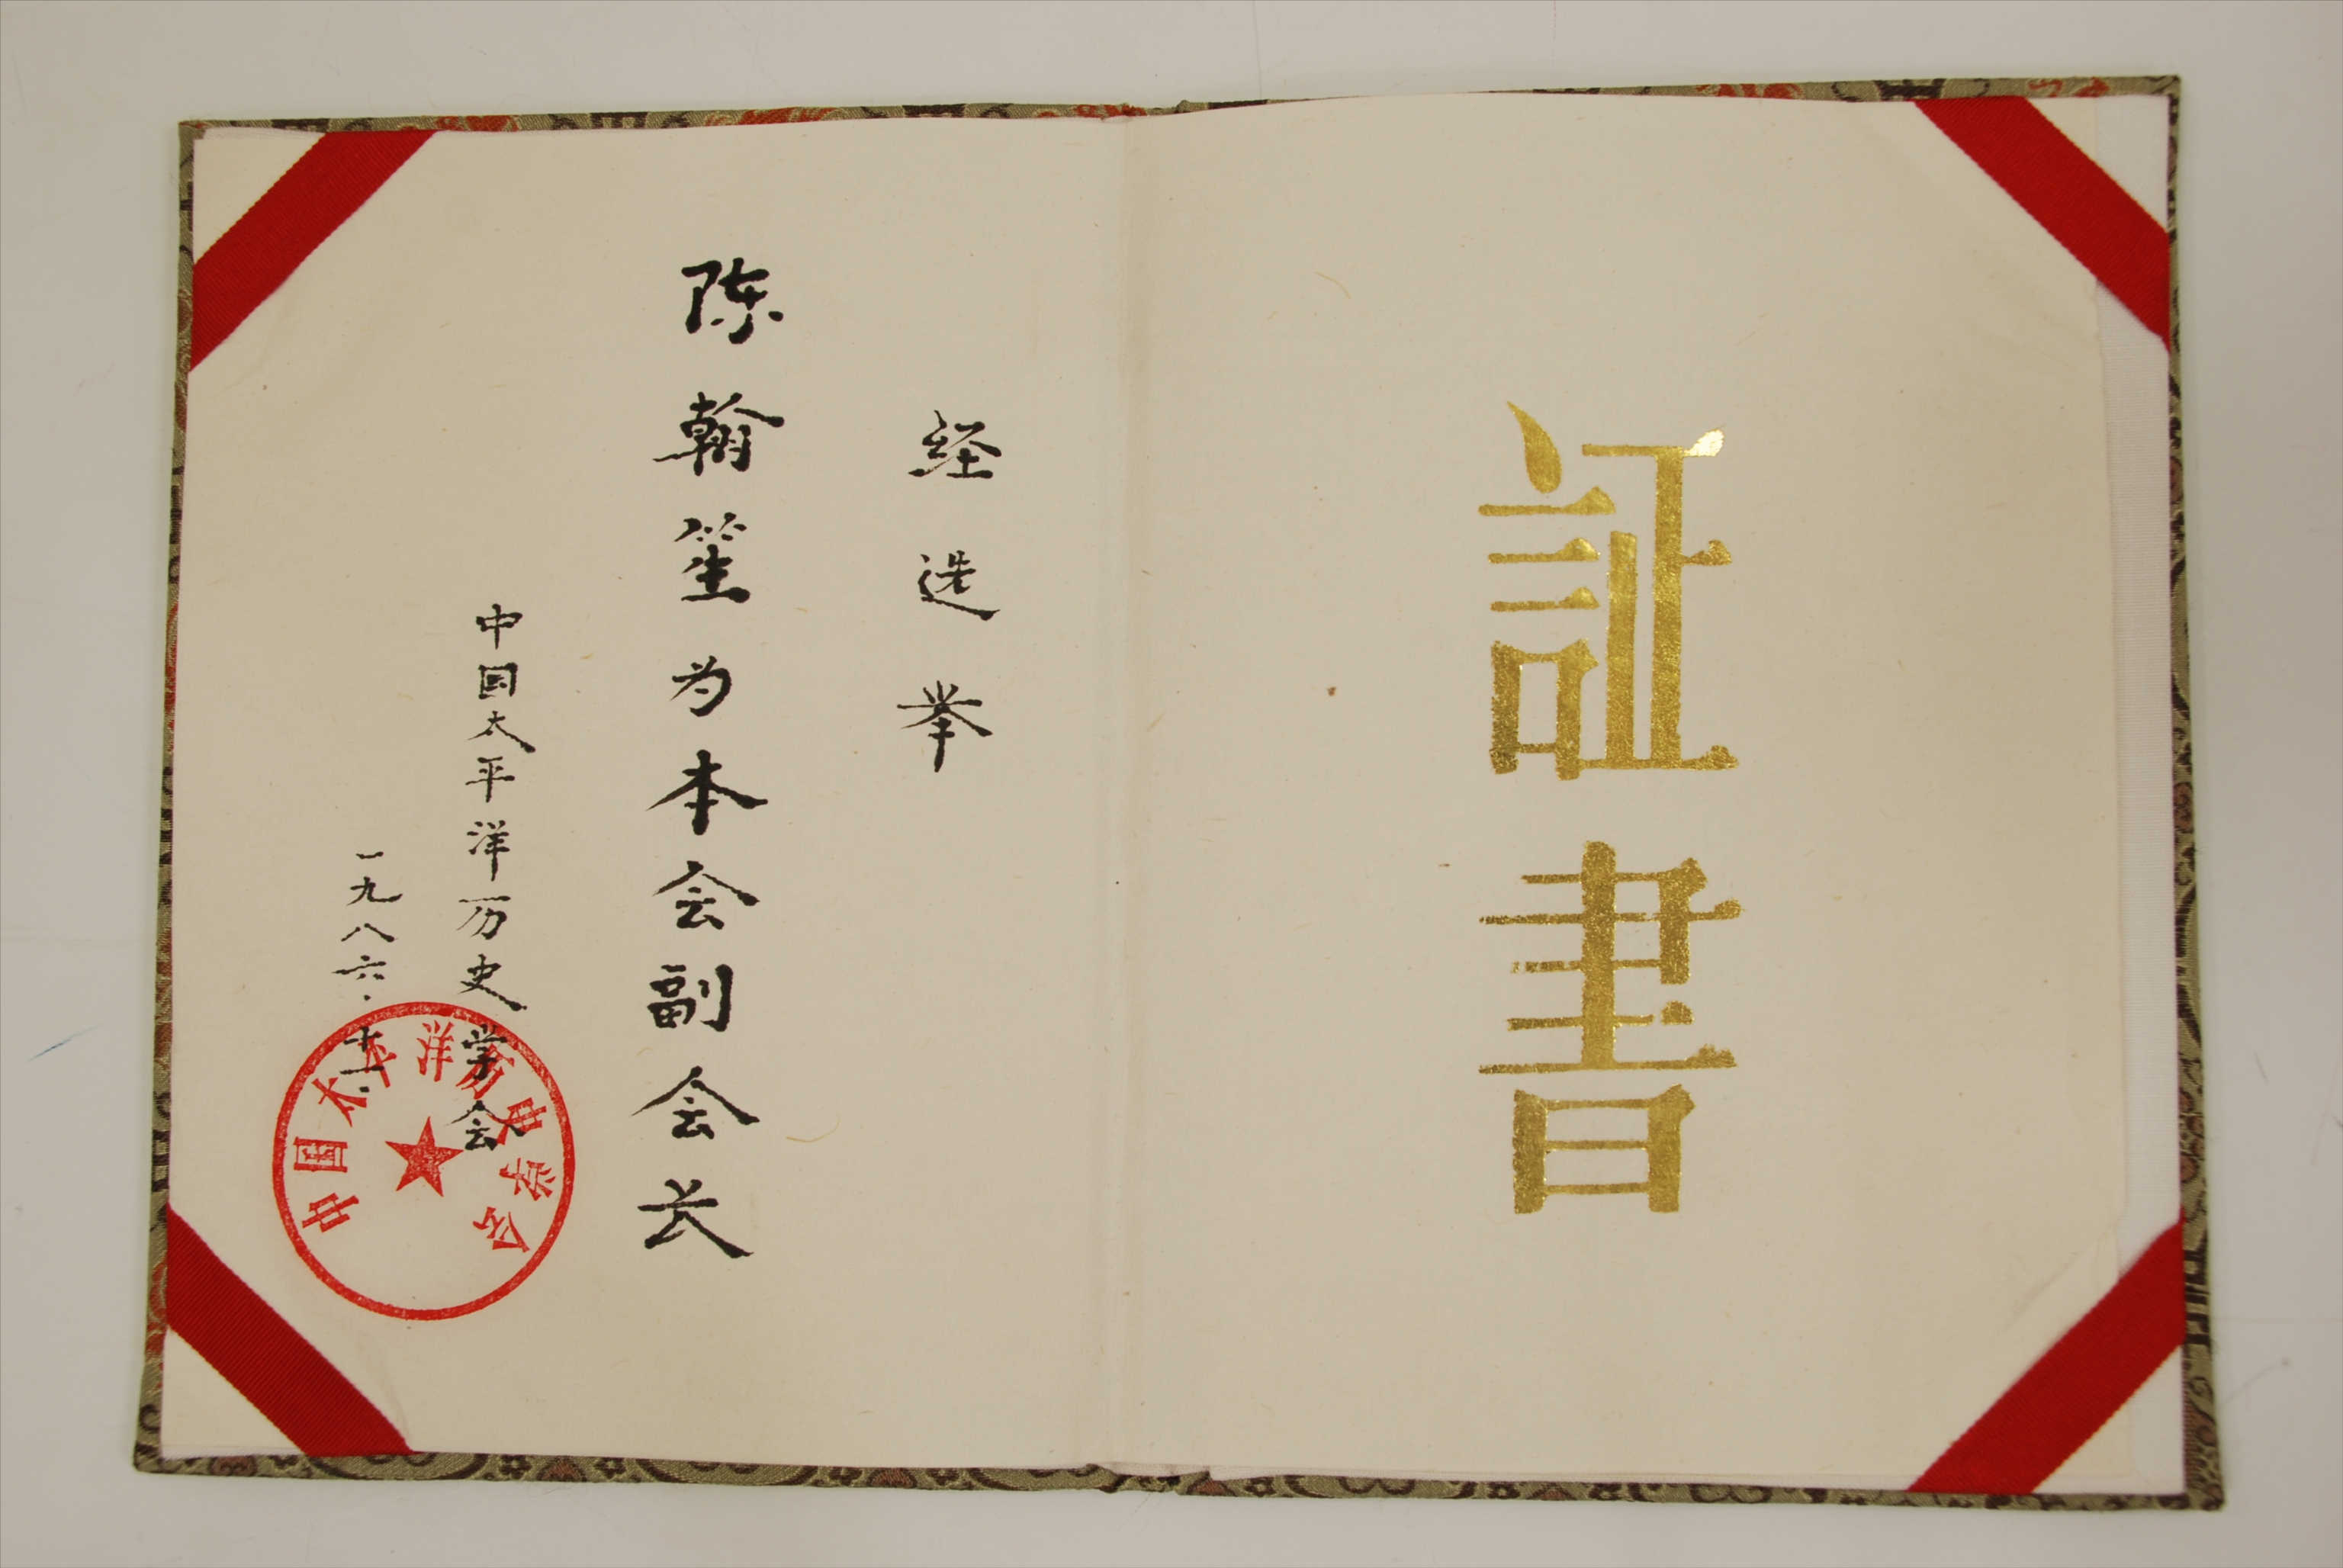 証書
经选举
陈翰笙为本会副会长
中国太平洋历史学会
一九八六.十一.
中国太平洋历史学会